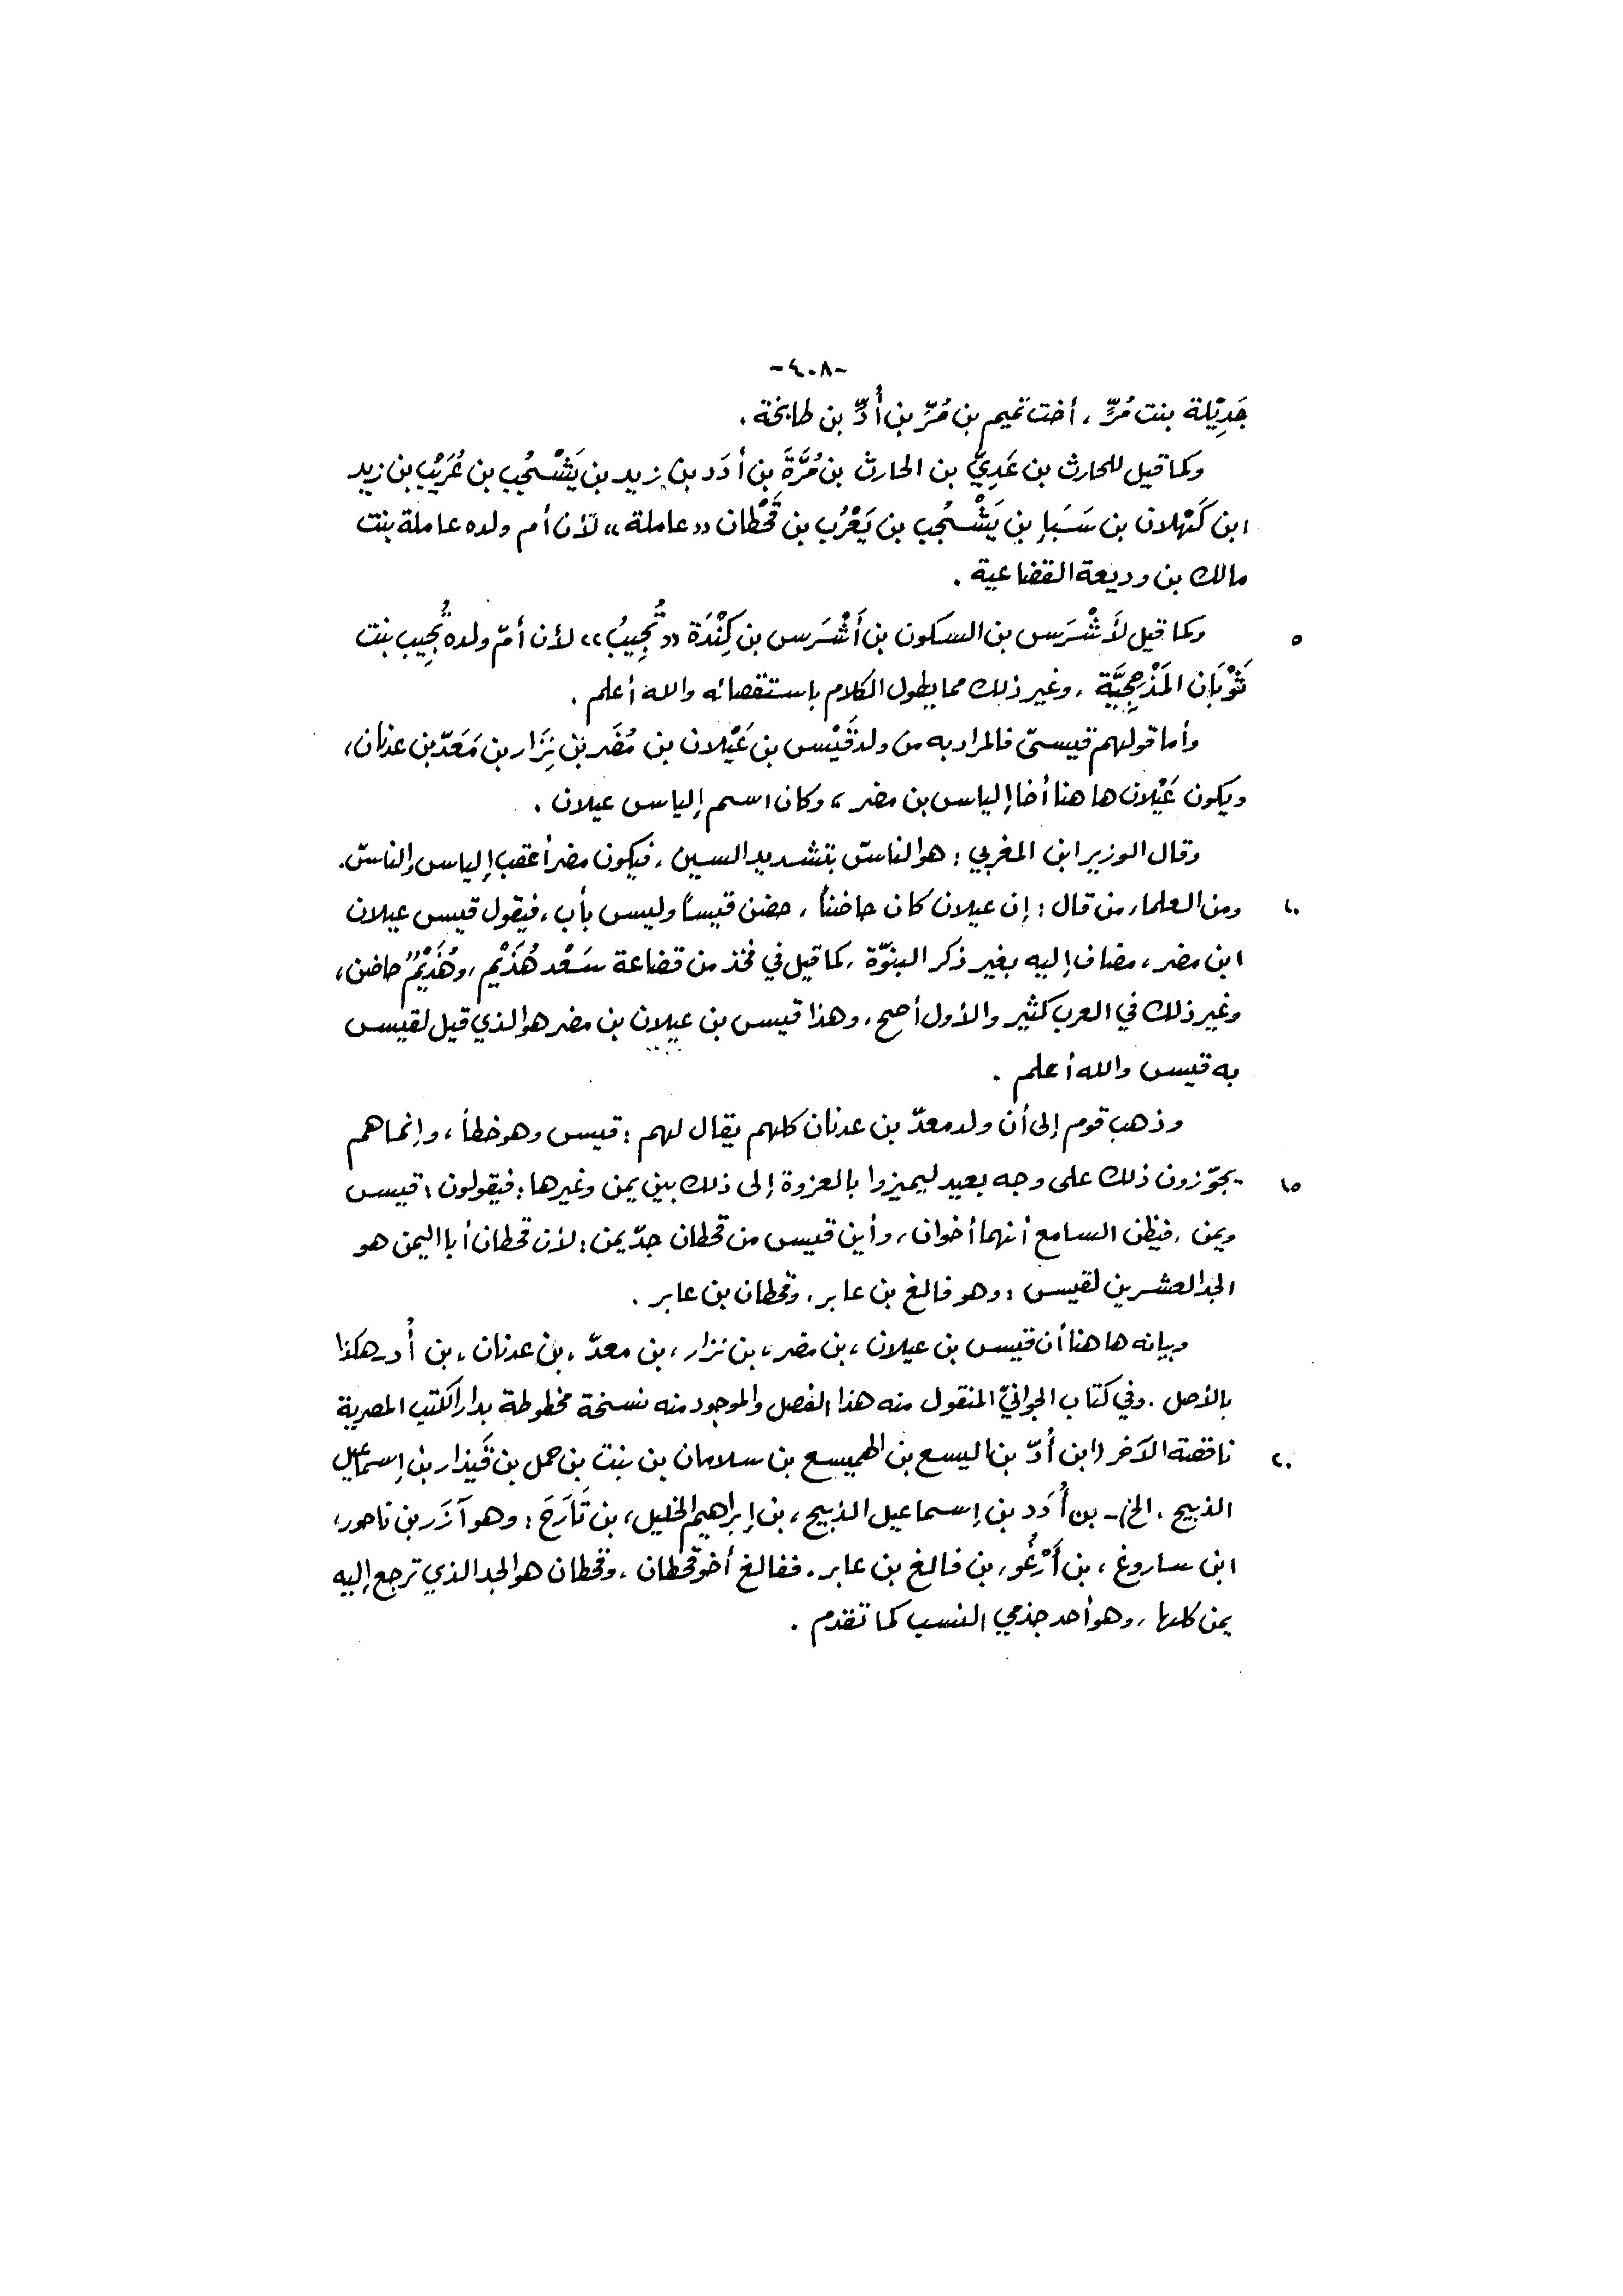 -٤٠٨-
جَدِيْلة بنت مُرٍّ ، أخت تميم بن مُرّ بن أُدٍّ بن طابخة .
وكما قيل للحارث بن عَدِيّ بن الحارث بن مُرَّةَ بن أدَد بن زيد بن يَشْجُب بن عُرَيْب بن زيد
ابن كَهْلان بن سَبَإ بن يَشْجُب بن يَعْرُب بن قَحْطان «عاملة» لأن أم ولده عاملة بنت
مالك بن وديعة القضاعية .
٥ وكما قيل لأشْرَس بن السكون بن أَشْرَس بن كِنْدَة «تُجِيبُ» لأن أمّ ولده تُجِيب بنت
ثَوْبَان المَذْحِجِيَّة ، وغير ذلك مما يطول الكلام باستقصائه والله أعلم .
وأما قولهم قيسيّ فالمراد به من ولد قَيْس بن عَيْلان بن مُضَر بن نِزَار بن مَعَدّ بن عدنان،
ويكون عَيْلان ها هنا أخا إلياس بن مضر ، وكان اسم إلياس عيلان .
وقال الوزير ابن المغربي : هو الناسّ بتشديد السين ، فيكون مضر أعقب إلياس والناسّ.
١٠ ومن العلماء من قال : إن عيلان كان حاضناً ، حضن قيساً وليس بأب ، فيقول قيس عيلان
ابن مضر ، مضاف إليه بغير ذكر البنوّة ، كما قيل في فخذ من قضاعة سَعْد هُذَيْم ، وهُذَيْمٌ حاضن،
وغير ذلك في العرب كثير والأول أصح ، وهذا قيس بن عيلان بن مضر هو الذي قيل لقيس
به قيس والله أعلم .
وذهب قوم إلى أن ولد معدّ بن عدنان كلهم يقال لهم : قيس وهو خطأ ، وإنما هم
١٥ يجوّزون ذلك على وجه بعيد ليميزوا بالعزوة إلى ذلك بين يمن وغيرها ؛ فيقولون : قيس
ويمن ، فيظن السامع أنهما أخوان ، وأين قيس من قحطان جدّ يمن ؛ لأن قحطان أبا اليمن هو
الجد العشرين لقيس ؛ وهو فالغ بن عابر ، وقحطان بن عابر .
وبيانه ها هنا أن قيس بن عيلان ، بن مضر ، بن نزار ، بن معدّ ، بن عدنان ، بن أُد - هكذا
بالأصل . وفي كتاب الجوانيّ المنقول منه هذا الفصل والموجود منه نسخة مخطوطة بدار الكتب المصرية
٢٠ ناقصة الآخر (ابن أُدّ بن اليسع بن الهميسع بن سلامان بن بنت بن حمل بن قَيذار بن إسماعيل
الذبيح ، الخ) - بن أُدَد بن إسماعيل الذبيح ، بن إبراهيم الخليل ، بن تَارَحَ ؛ وهو آزَر بن ناحور،
ابن ساروغ ، بن أَرْغُو ، بن فالغ بن عابر . ففالغ أخو قحطان ، وقحطان هو الجد الذي ترجع إليه
يمن كلها ، وهو أحد جذمي النسب كما تقدم .